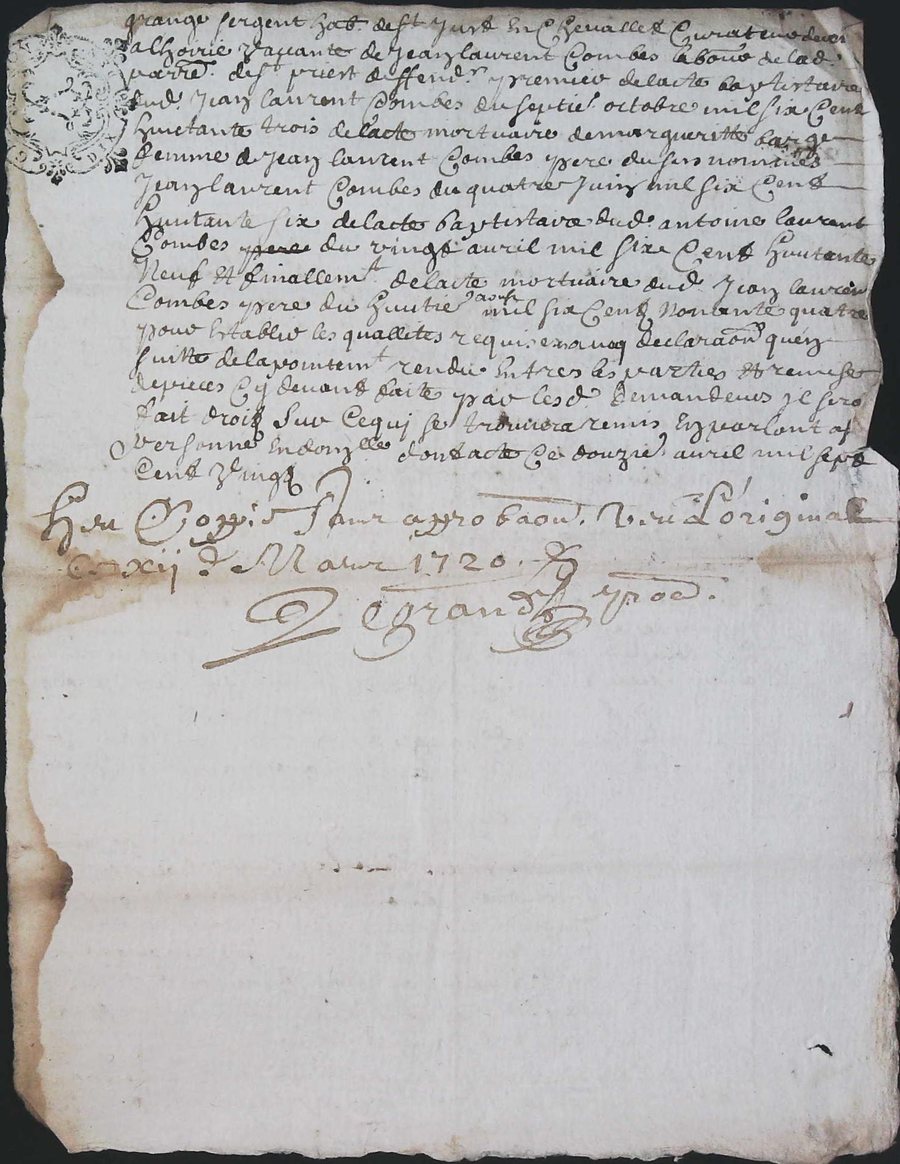 grange sergent hab.t de st Just en Chevallet Curateur decerné
alhoirie vaquante de Jean laurent Combes laboure.r de lad
parre. de st priest deffend.r premier de lacte baptistaire
dud. Jean laurent Combes du septie. octobre mil six Cent
huictante trois de lacte mortuaire de margueritte barge
femme de Jean laurent Combes pere du sus nommés
Jean laurent Combes du quatre Juin mil six Cent
huictante six de lacte baptistaire dud. antoine laurent
Combes pere du vingt avril mil six Cent huictante
Neuf Et finallem.t de lacte mortuaire dud. Jean lauren
Combes pere du huitie. aoust mil six Cent Nonante quatre
pour Establir les quallites requises avecq declaraon. quen
suitte de lapointem.t rendu Entres les parties Et remise
de pieces Cy devant faite par lesd. demandeurs il sera
fait droit sur Cequi se trouvera remis En parlant a
personne En domlle dont acte Ce douzie. avril mil sept
Cent vingt
Heu Coppie sauf approbaon. veu L'original
Ce xij e 1720
Degrand proc.